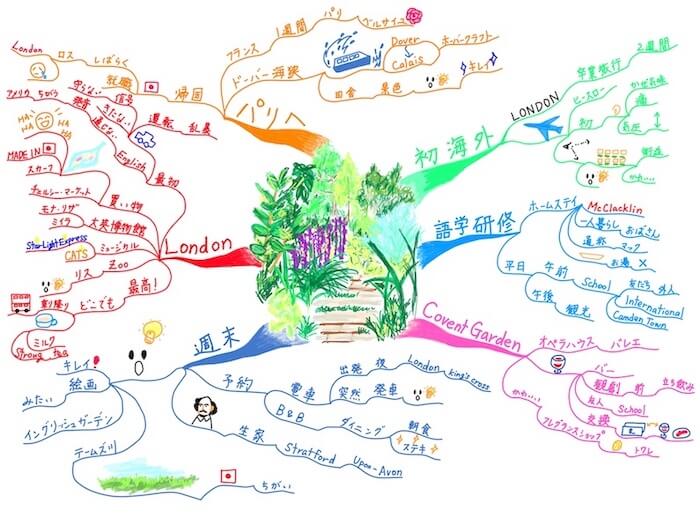 初海外
LONDON
卒業旅行
2週間
ヒースロー
初
かぜ気味
痛
気圧
機内
かわいい
語学研修
ホームステイ
McClacklin
一人暮らし
おばさん
通称
マック
お湯
×
平日
午前
School
友だち
外人
International
Camden Town
午後
観光
Covent Garden
オペラハウス
バレエ
バー
観劇
前
立ち飲み
友人
School
交換
かわいい
フレグランスショップ
トワレ
週末
予約
電車
出発
後
London
king's cross
突然
発車
B&B
ダイニング
朝食
ステキ
生家
Stratford
Upon-Avon
キレイ
絵画
みたい
イングリッシュガーデン
テームズ川
ちがい
London
最初
English
運転
乱暴
信号
守らない
きたない
発音
通じない
アメリカ
ちがう
HA-HA
HA HA
HA
買い物
MADE IN
スカーフ
チェルシー・マーケット
大英博物館
モナ・リザ
ミイラ
ミュージカル
StarLightExpress
CATS
Zoo
リス
最高!
どこでも
乗り降り
ミルク
Strong tea
パリへ
フランス
1週間
パリ
ベルサイユ
ドーバー海峡
Dover
Calais
ホーバークラフト
田舎
景色
キレイ
帰国
就職
しばらく
ロス
London